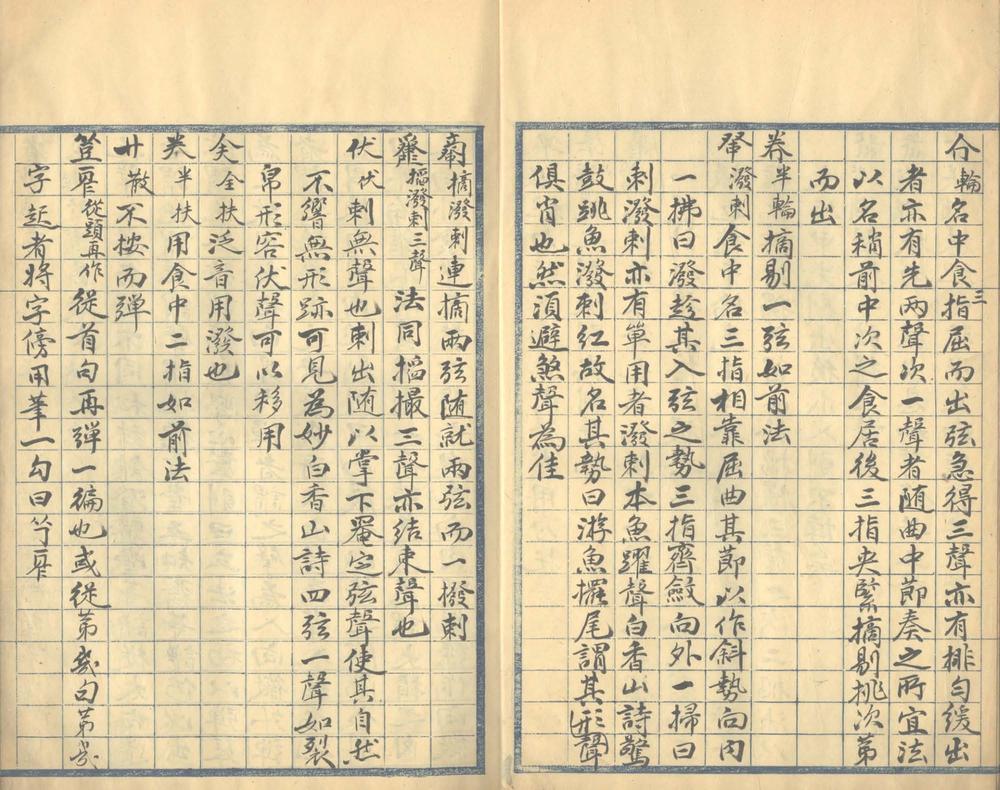 仑輪名中食三指屈而出弦急得三聲亦有排勻緩出
者亦有先兩聲次一聲者随曲中節奏之所宜法
以名稍前中次之食居後三指夾緊摘剔挑次第
而出
半輪摘剔一弦如前法
潑刺食中名三指相靠屈曲其節以作斜勢向内
一拂曰潑趁其入弦之勢三指齊斂向外一掃曰
刺潑刺亦有單用者潑刺本魚躍聲白香山詩驚
鼓跳魚潑刺紅故名其勢曰游魚擺尾謂其形聲
俱肖也然須避煞聲為佳
摘潑刺連摘兩弦随就兩弦而一撥刺
搯潑刺三聲法同搯撮三聲亦结束聲也
伏伏刺無聲也刺出随以掌下罨定弦聲使其自然
不響無形跡可見為妙白香山詩四弦一聲如裂
帛形容伏聲可以移用
全扶泛音用潑也
半扶用食中二指如前法
廾散不按而弹
從頭再作從首句再弹一徧也或從苐幾句苐幾
字起者將字傍用筆一勾曰